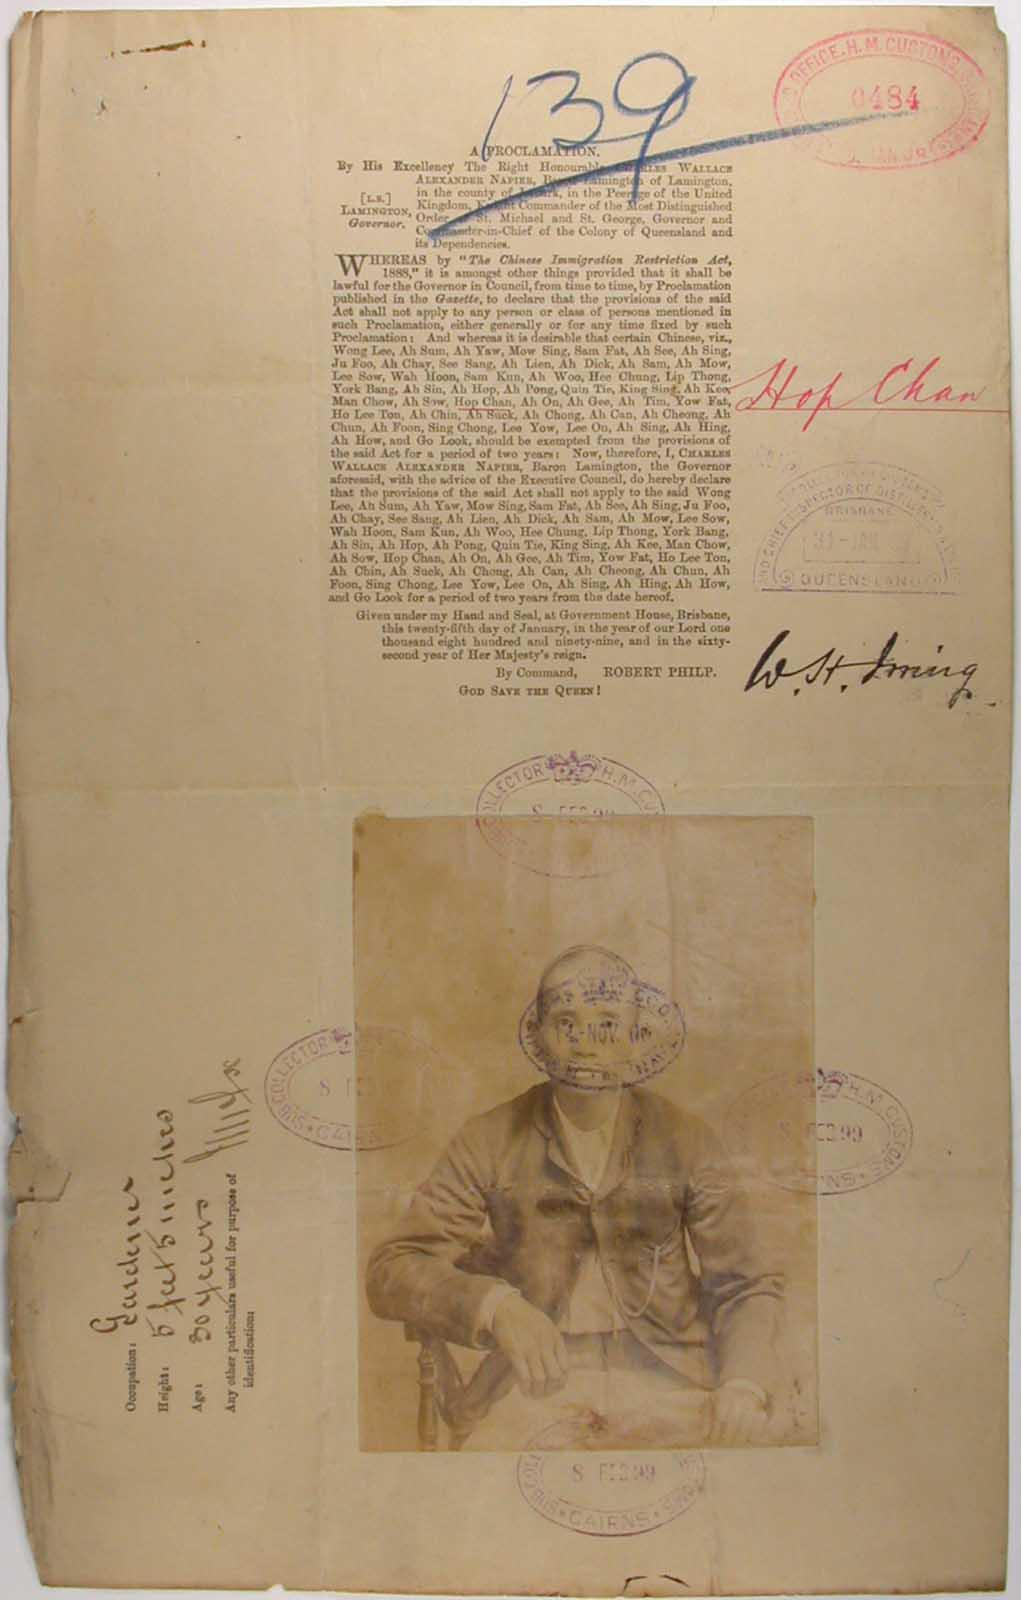 139
OFFICE. H. M. CUSTOMS
0484
A PROCLAMATION.
By His Excellency The Right Honourable CHARLES WALLACE
ALEXANDER NAPIER, Baron Lamington of Lamington,
in the county of Lanark, in the Peerage of the United
[L.S.] Kingdom, Knight Commander of the Most Distinguished
LAMINGTON, Order of St. Michael and St. George, Governor and
Governor. Commander-in-Chief of the Colony of Queensland and
its Dependencies.
WHEREAS by "The Chinese Immigration Restriction Act,
1888," it is amongst other things provided that it shall be
lawful for the Governor in Council, from time to time, by Proclamation
published in the Gazette, to declare that the provisions of the said
Act shall not apply to any person or class of persons mentioned in
such Proclamation, either generally or for any time fixed by such
Proclamation: And whereas it is desirable that certain Chinese, viz.,
Wong Lee, Ah Sum, Ah Yaw, Mow Sing, Sam Fat, Ah See, Ah Sing,
Ju Foo, Ah Chay, See Sang, Ah Lien, Ah Dick, Ah Sam, Ah Mow,
Lee Sow, Wah Hoon, Sam Kun, Ah Woo, Hee Chung, Lip Thong,
York Bang, Ah Sin, Ah Hop, Ah Pong, Quin Tie, King Sing, Ah Kee,
Man Chow, Ah Sow, Hop Chan, Ah On, Ah Gee, Ah Tim, Yow Fat,
Ho Lee Ton, Ah Chin, Ah Suck, Ah Chong, Ah Can, Ah Cheong, Ah
Chun, Ah Foon, Sing Chong, Lee Yow, Lee On, Ah Sing, Ah Hing,
Ah How, and Go Look, should be exempted from the provisions of
the said Act for a period of two years: Now, therefore, I, CHARLES
WALLACE ALEXANDER NAPIER, Baron Lamington, the Governor
aforesaid, with the advice of the Executive Council, do hereby declare
that the provisions of the said Act shall not apply to the said Wong
Lee, Ah Sum, Ah Yaw, Mow Sing, Sam Fat, Ah See, Ah Sing, Ju Foo,
Ah Chay, See Sang, Ah Lien, Ah Dick, Ah Sam, Ah Mow, Lee Sow,
Wah Hoon, Sam Kun, Ah Woo, Hee Chung, Lip Thong, York Bang,
Ah Sin, Ah Hop, Ah Pong, Quin Tie, King Sing, Ah Kee, Man Chow,
Ah Sow, Hop Chan, Ah On, Ah Gee, Ah Tim, Yow Fat, Ho Lee Ton,
Ah Chin, Ah Suck, Ah Chong, Ah Can, Ah Cheong, Ah Chun, Ah
Foon, Sing Chong, Lee Yow, Lee On, Ah Sing, Ah Hing, Ah How,
and Go Look for a period of two years from the date hereof.
Given under my Hand and Seal, at Government House, Brisbane,
this twenty-fifth day of January, in the year of our Lord one
thousand eight hundred and ninety-nine, and in the sixty-
second year of Her Majesty's reign.
By Command, ROBERT PHILP.
GOD SAVE THE QUEEN!
Hop Chan
AND CHIEF INSPECTOR OF DISTILLERIES
BRISBANE
31-JAN
QUEENSLAND
W. H. Irving
SUB COLLECTOR H. M. CUSTOMS
8 FEB 99
NOV.
SUB COLLECTOR
8
CAIRNS
H. M. CUSTOMS
8 FEB 99
8 FEB 99
CAIRNS
Occupation: Gardener
Height: 5 feet 5 inches
Age: 30 years
Any other particulars useful for purpose of
identification: